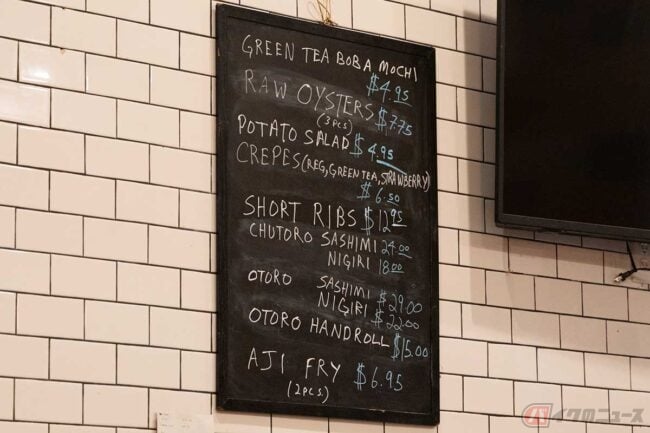 GREEN TEA BOBA MOCHI
$4.95
RAW OYSTERS $7.75
(3 PCS)
POTATO SALAD $4.95
CREPES (REG, GREEN TEA, STRAWBERRY)
$6.50
SHORT RIBS $12.95
CHUTORO SASHIMI 24.00
NIGIRI 18.00
OTORO SASHIMI $29.00
NIGIRI $22.00
OTORO HANDROLL $15.00
AJI FRY $6.95
(2 PCS.)
バイクのニュース